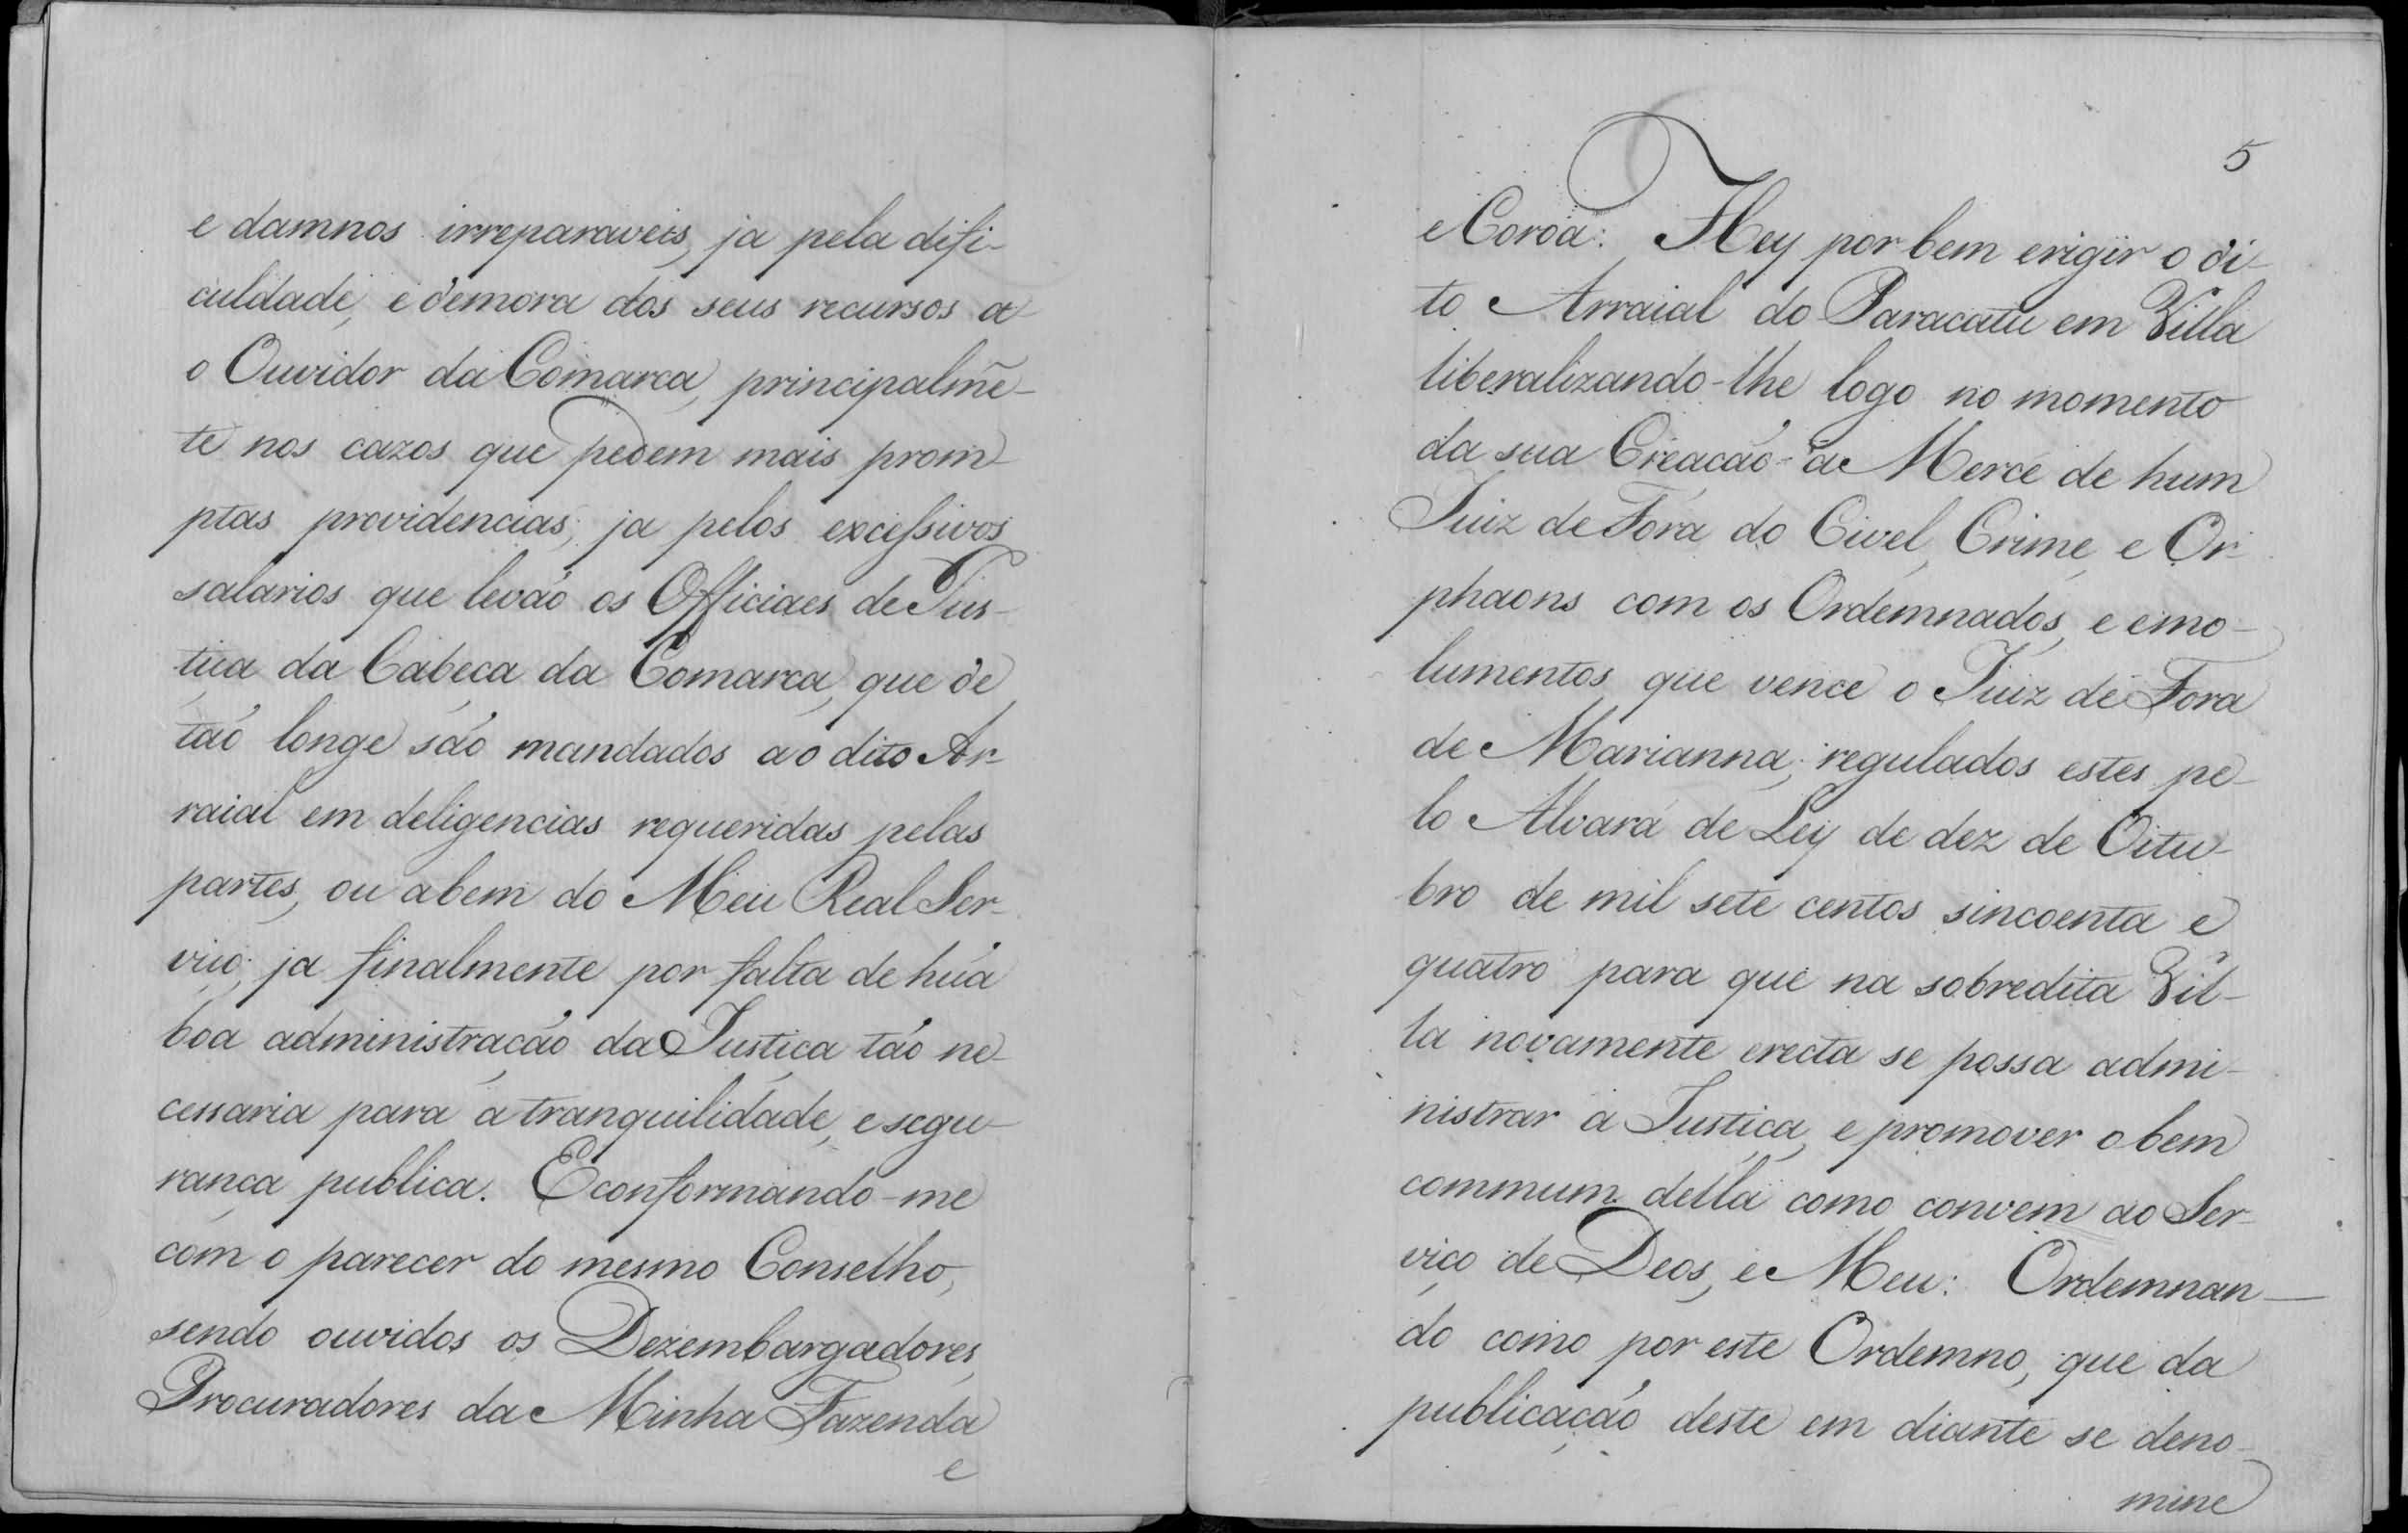 e damnos irreparaveis, ja pela difi-
culdade, e demora dos seus recursos a
o Ouvidor da Comarca, principalmẽ-
te nos cazos que pedem mais prom-
ptas providencias; ja pelos excessivos
salarios que levaõ os Officiaes de Jus-
tiça da Cabeça da Comarca, que de
taõ longe saõ mandados ao dito Ar-
raial em deligencias requeridas pelas
partes, ou abem do Meu Real Ser-
viço; ja finalmente por falta de húa
boa administraçaõ da Justiça taõ ne-
cessaria para a tranquilidade, e segu-
rança publica. E conformando-me
com o parecer do mesmo Conselho,
sendo ouvidos os Dezembargadores,
Procuradores da Minha Fazenda
e
5
e Coroa: Hey por bem erigir o di-
to Arraial do Paracatu em Villa
liberalizando-lhe logo no momento
da sua Creaçaõ a Merce de hum
Juiz de Fora do Civel, Crime, e Or-
phaons com os Ordemnados, e emo-
lumentos que vence o Juiz de Fora
de Marianna; regulados estes pe-
lo Alvará de Ley de dez de Oitu-
bro de mil sete centos sincoenta e
quatro para que na sobredita Vil-
la novamente erecta se possa admi-
nistrar a Justiça, e promover o bem
commum della como convem ao Ser-
viço de Deos, e Meu: Ordemnan-
do como por este Ordemno, que da
publicaçaõ deste em diante se deno-
mine